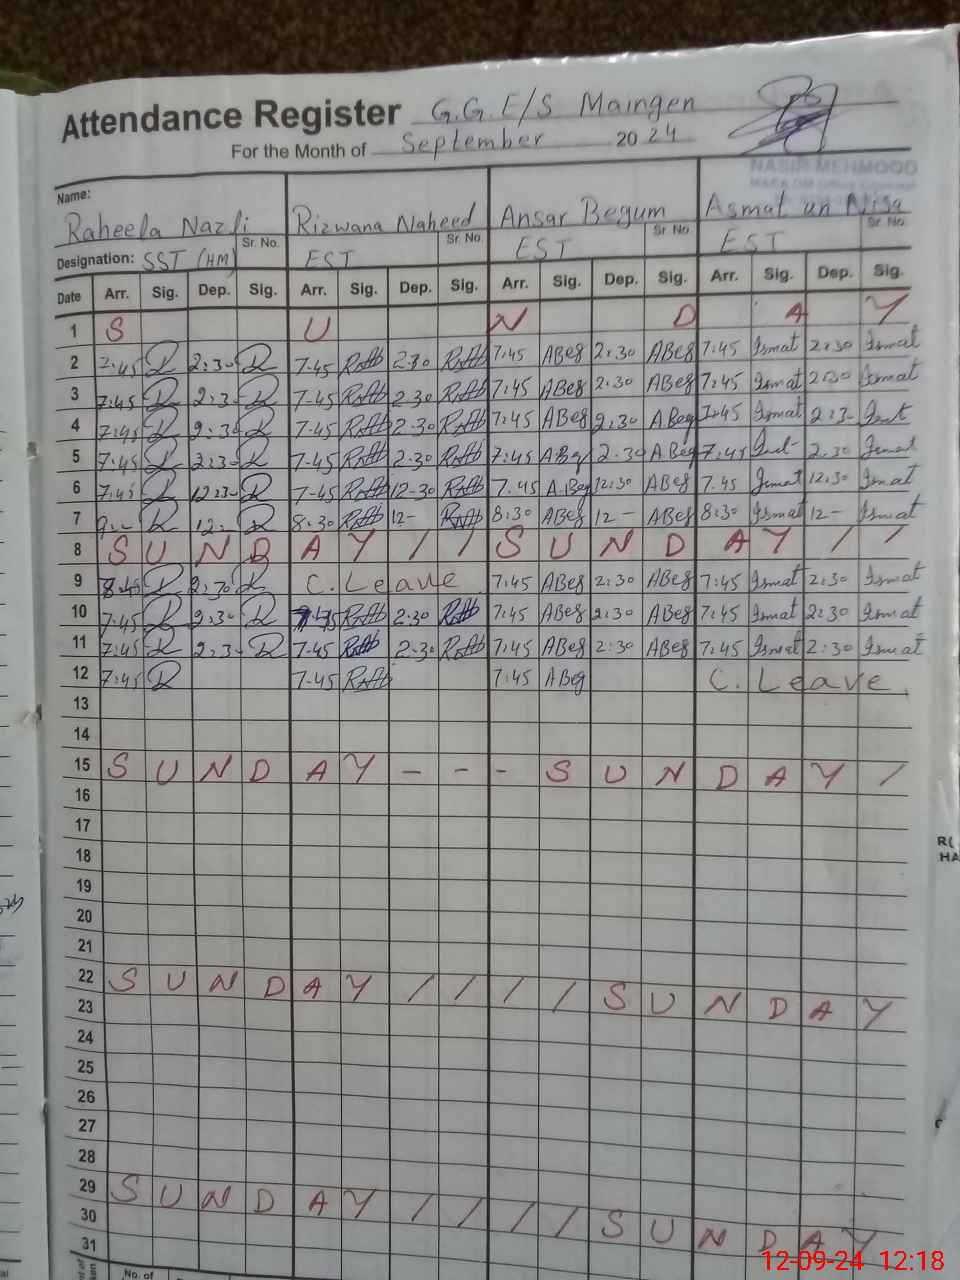 Attendance Register G.G.E/S Maingen
For the Month of September 2024
NASIR MEHMOOD
Name:
Raheela Nazli Rizwana Naheed Ansar Begum Asmat un Nisa
Sr. No. Sr. No. Sr. No. Sr. No.
Designation: SST (HM) EST EST EST
Date Arr. Sig. Dep. Sig. Arr. Sig. Dep. Sig. Arr. Sig. Dep. Sig. Arr. Sig. Dep. Sig.
1 S U N D A Y
2 7:45 2:30 7-45 2-30 7:45 ABeg 2:30 ABeg 7:45 Ismat 2:30 Ismat
3 7:45 2:3- 7-45 2-30 7:45 ABeg 2:30 ABeg 7:45 Ismat 2:30 Ismat
4 7:45 2:30 7-45 2-30 7:45 ABeg 2:30 A.Beg 7:45 Ismat 2:3-
5 7:45 2:3- 7-45 2-30 7:45 A.Beg 2.30 A.Beg 7:45 2.30 Ismat
6 7:45 12:3- 7-45 12-30 7.45 A.Beg 12:30 ABeg 7.45 Ismat 12:30 Ismat
7 12:- 8:30 12- 8:30 ABeg 12- ABeg 8:30 Ismat 12- Ismat
8 S U N D A Y / / S U N D A Y / /
9 8:45 2:30 C. Leave 7:45 ABeg 2:30 ABeg 7:45 Ismat 2:30 Ismat
10 7:45 2:30 7-45 2:30 7:45 ABeg 2:30 ABeg 7:45 Ismat 2:30 Ismat
11 7:45 2:3- 7-45 2-30 7:45 ABeg 2:30 ABeg 7:45 Ismat 2:30 Ismat
12 7:45 7-45 7:45 ABeg C. Leave.
13
14
15 S U N D A Y - - - S U N D A Y /
16
17
18
19
20
21
22 S U N D A Y / / / / S U N D A Y
23
24
25
26
27
28
29 S U N D A Y / / / / S U N D A Y
30
31
No. of
HA
12-09-24 12:18